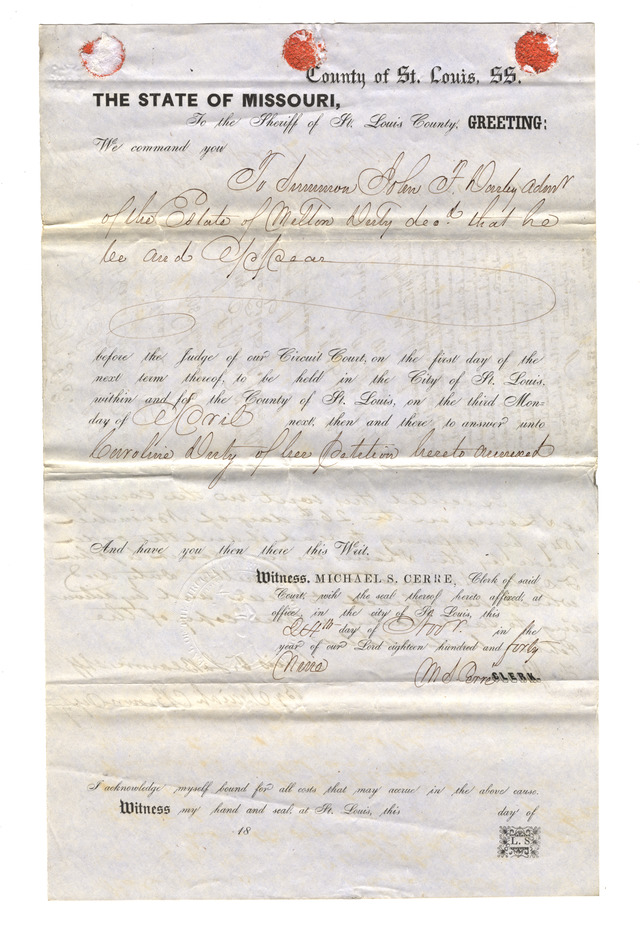 County of St. Louis, SS.
THE STATE OF MISSOURI,
To the Sheriff of St. Louis County, GREETING:
We command you
To Summon John F. Darby admr
of the Estate of Milton Duty decd. that he
be and Appear
before the Judge of our Circuit Court, on the first day of the
next term thereof, to be held in the City of St. Louis,
within and for the County of St. Louis, on the third Mon-
day of April next, then and there to answer unto
Caroline Duty of her Petition hereto annexed
And have you then there this Writ.
Witness, MICHAEL S. CERRE, Clerk of said
Court, with the seal thereof hereto affixed, at
office, in the city of St. Louis, this
24th day of Novr. in the
year of our Lord eighteen hundred and forty
Nine
M S Cerre CLERK.
I acknowledge myself bound for all costs that may accrue in the above cause.
Witness my hand and seal, at St. Louis, this day of
18
L. S